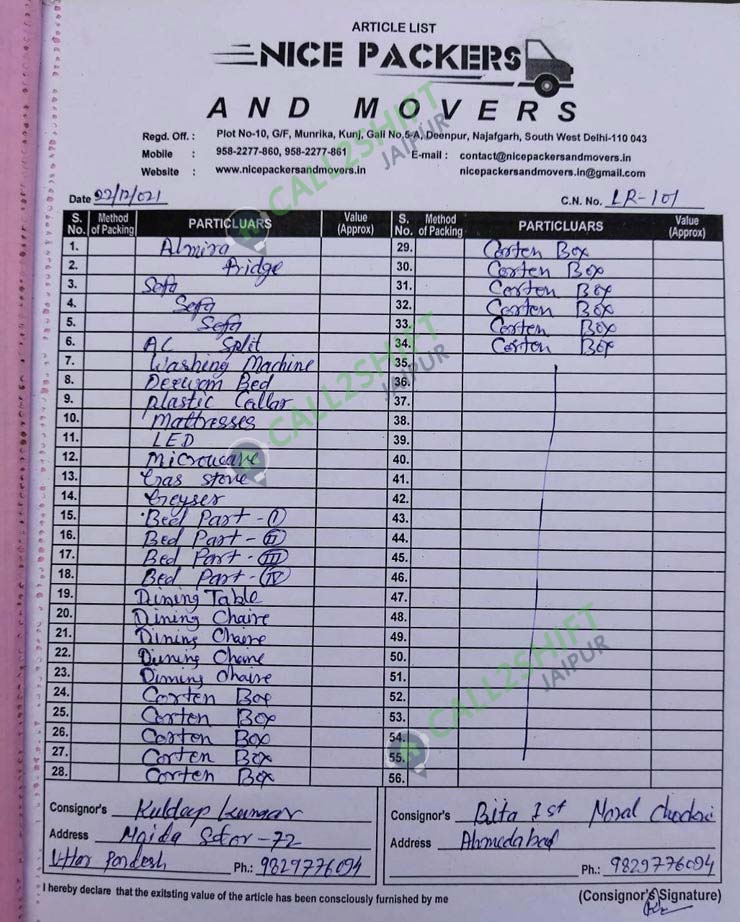 ARTICLE LIST
NICE PACKERS
AND MOVERS
Regd. Off. : Plot No-10, G/F, Munrika, Kunj, Gali No,5-A, Deenpur, Najafgarh, South West Delhi-110 043
Mobile : 958-2277-860, 958-2277-861 E-mail : contact@nicepackersandmovers.in
Website : www.nicepackersandmovers.in nicepackersandmovers.in@gmail.com
Date 22/12/021 C.N. No. LR-101
S. No. Method of Packing PARTICLUARS Value (Approx) S. No. Method of Packing PARTICLUARS Value (Approx)
1. Almira 29. Corten Box
2. Fridge 30. Corten Box
3. Sofa 31. Corten Box
4. Sofa 32. Corten Box
5. Sofa 33. Corten Box
6. AC Split 34. Corten Box
7. Washing Machine 35.
8. Deewam Bed 36.
9. Plastic Collar 37.
10. Mattresses 38.
11. LED 39.
12. Microwave 40.
13. Gas stove 41.
14. Geyser 42.
15. Bed Part - I 43.
16. Bed Part - II 44.
17. Bed Part - III 45.
18. Bed Part - IV 46.
19. Dining Table 47.
20. Dining Chaire 48.
21. Dining Chaire 49.
22. Dining Chaire 50.
23. Dining Chaire 51.
24. Corten Box 52.
25. Corten Box 53.
26. Corten Box 54.
27. Corten Box 55.
28. Corten Box 56.
Consignor's Kuldap kumar Consignor's
Address Noida Sctor-72 Address Ahmedabad
Uttar Pordesh Ph.: 9829776094 Ph.: 9829776094
I hereby declare that the exitsting value of the article has been consciously furnished by me (Consignor's Signature)
CALL2SHIFT
JAIPUR
CALL2SHIFT
JAIPUR
CALL2SHIFT
JAIPUR